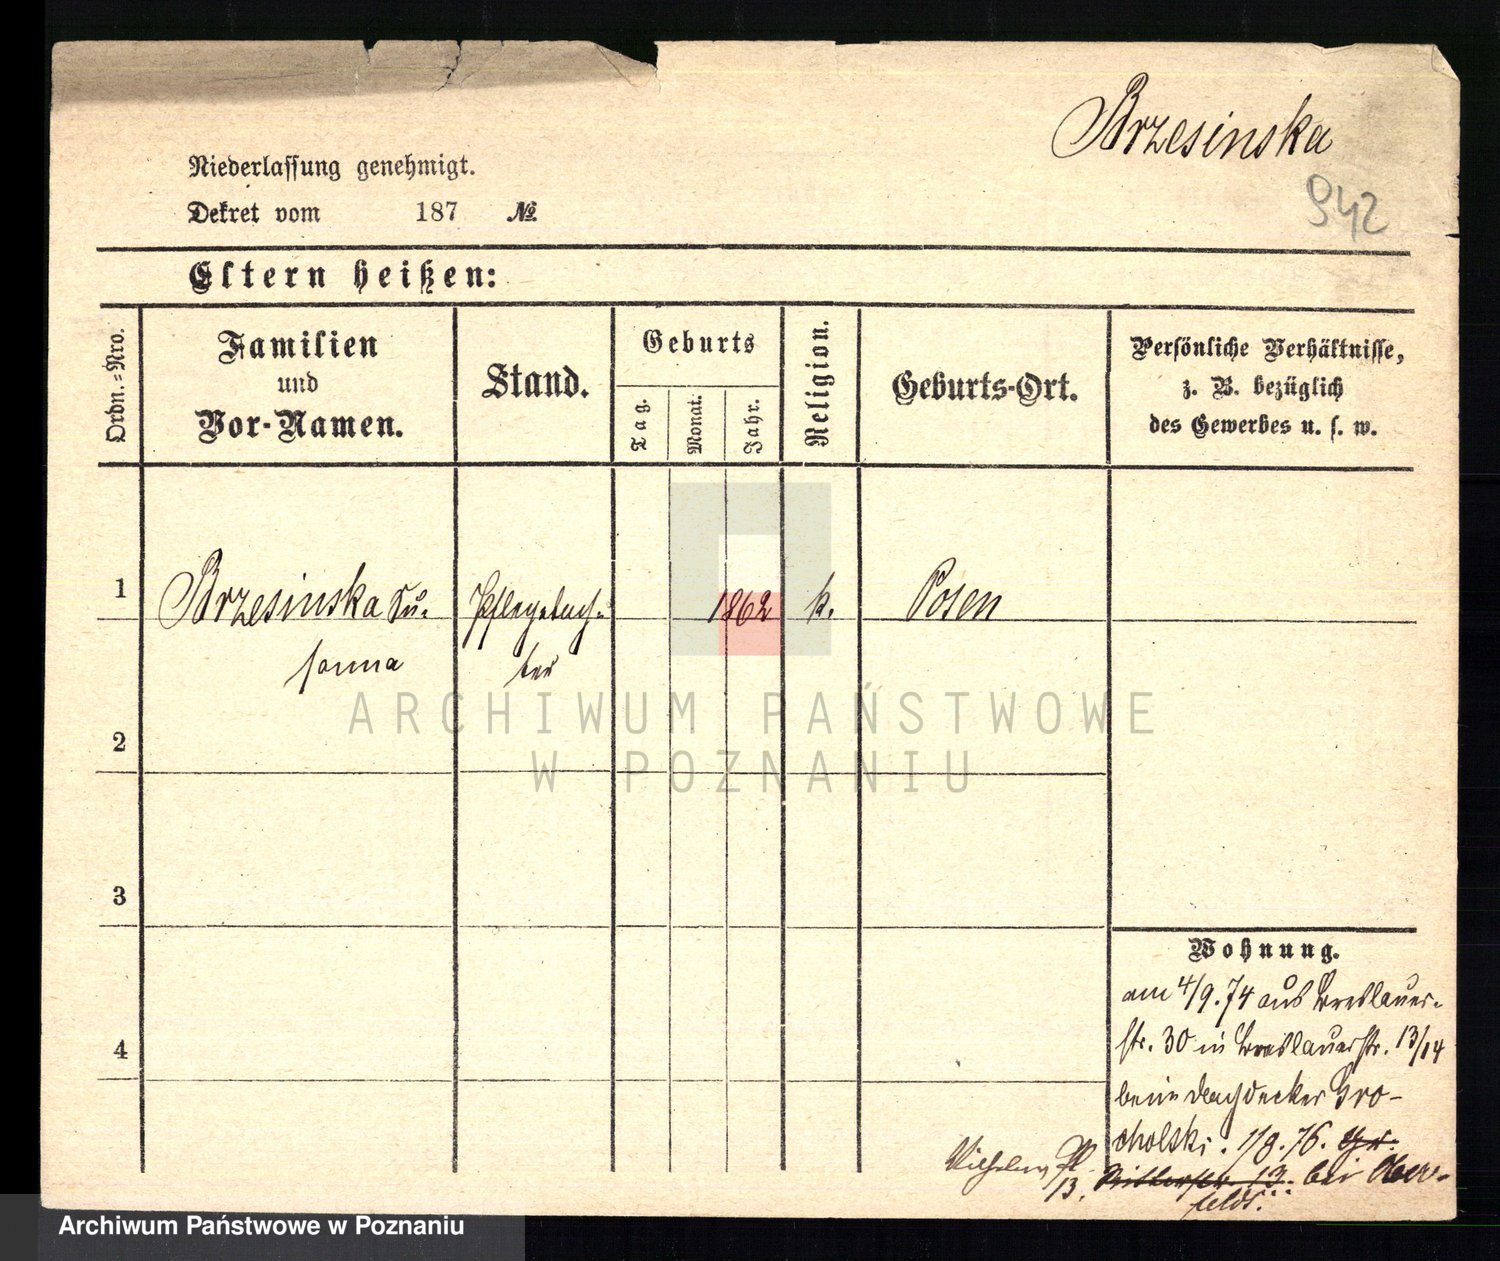 Brzesinska
942
Niederlassung genehmigt.
Dekret vom 187 №
Eltern heißen:
Ordn.-Nro.
Familien
und
Vor-Namen.
Stand.
Geburts
Tag.
Monat.
Jahr.
Religion.
Geburts-Ort.
Persönliche Verhältnisse,
z. B. bezüglich
des Gewerbes u. s. w.
1 Brzesinska Su- Pflegetoch- 1862 k. Posen
sanna ter
ARCHIWUM PAŃSTWOWE
2
W POZNANIU
3
Wohnung.
am 4/9. 74 aus Breslauer-
str. 30 in Breslauerstr. 13/14
4
beim Dachdecker Gro-
cholski. 1/9. 76.
Wilhelms Pl. 13. Ritterstr. 13. bei Ober-
feldt.
Archiwum Państwowe w Poznaniu